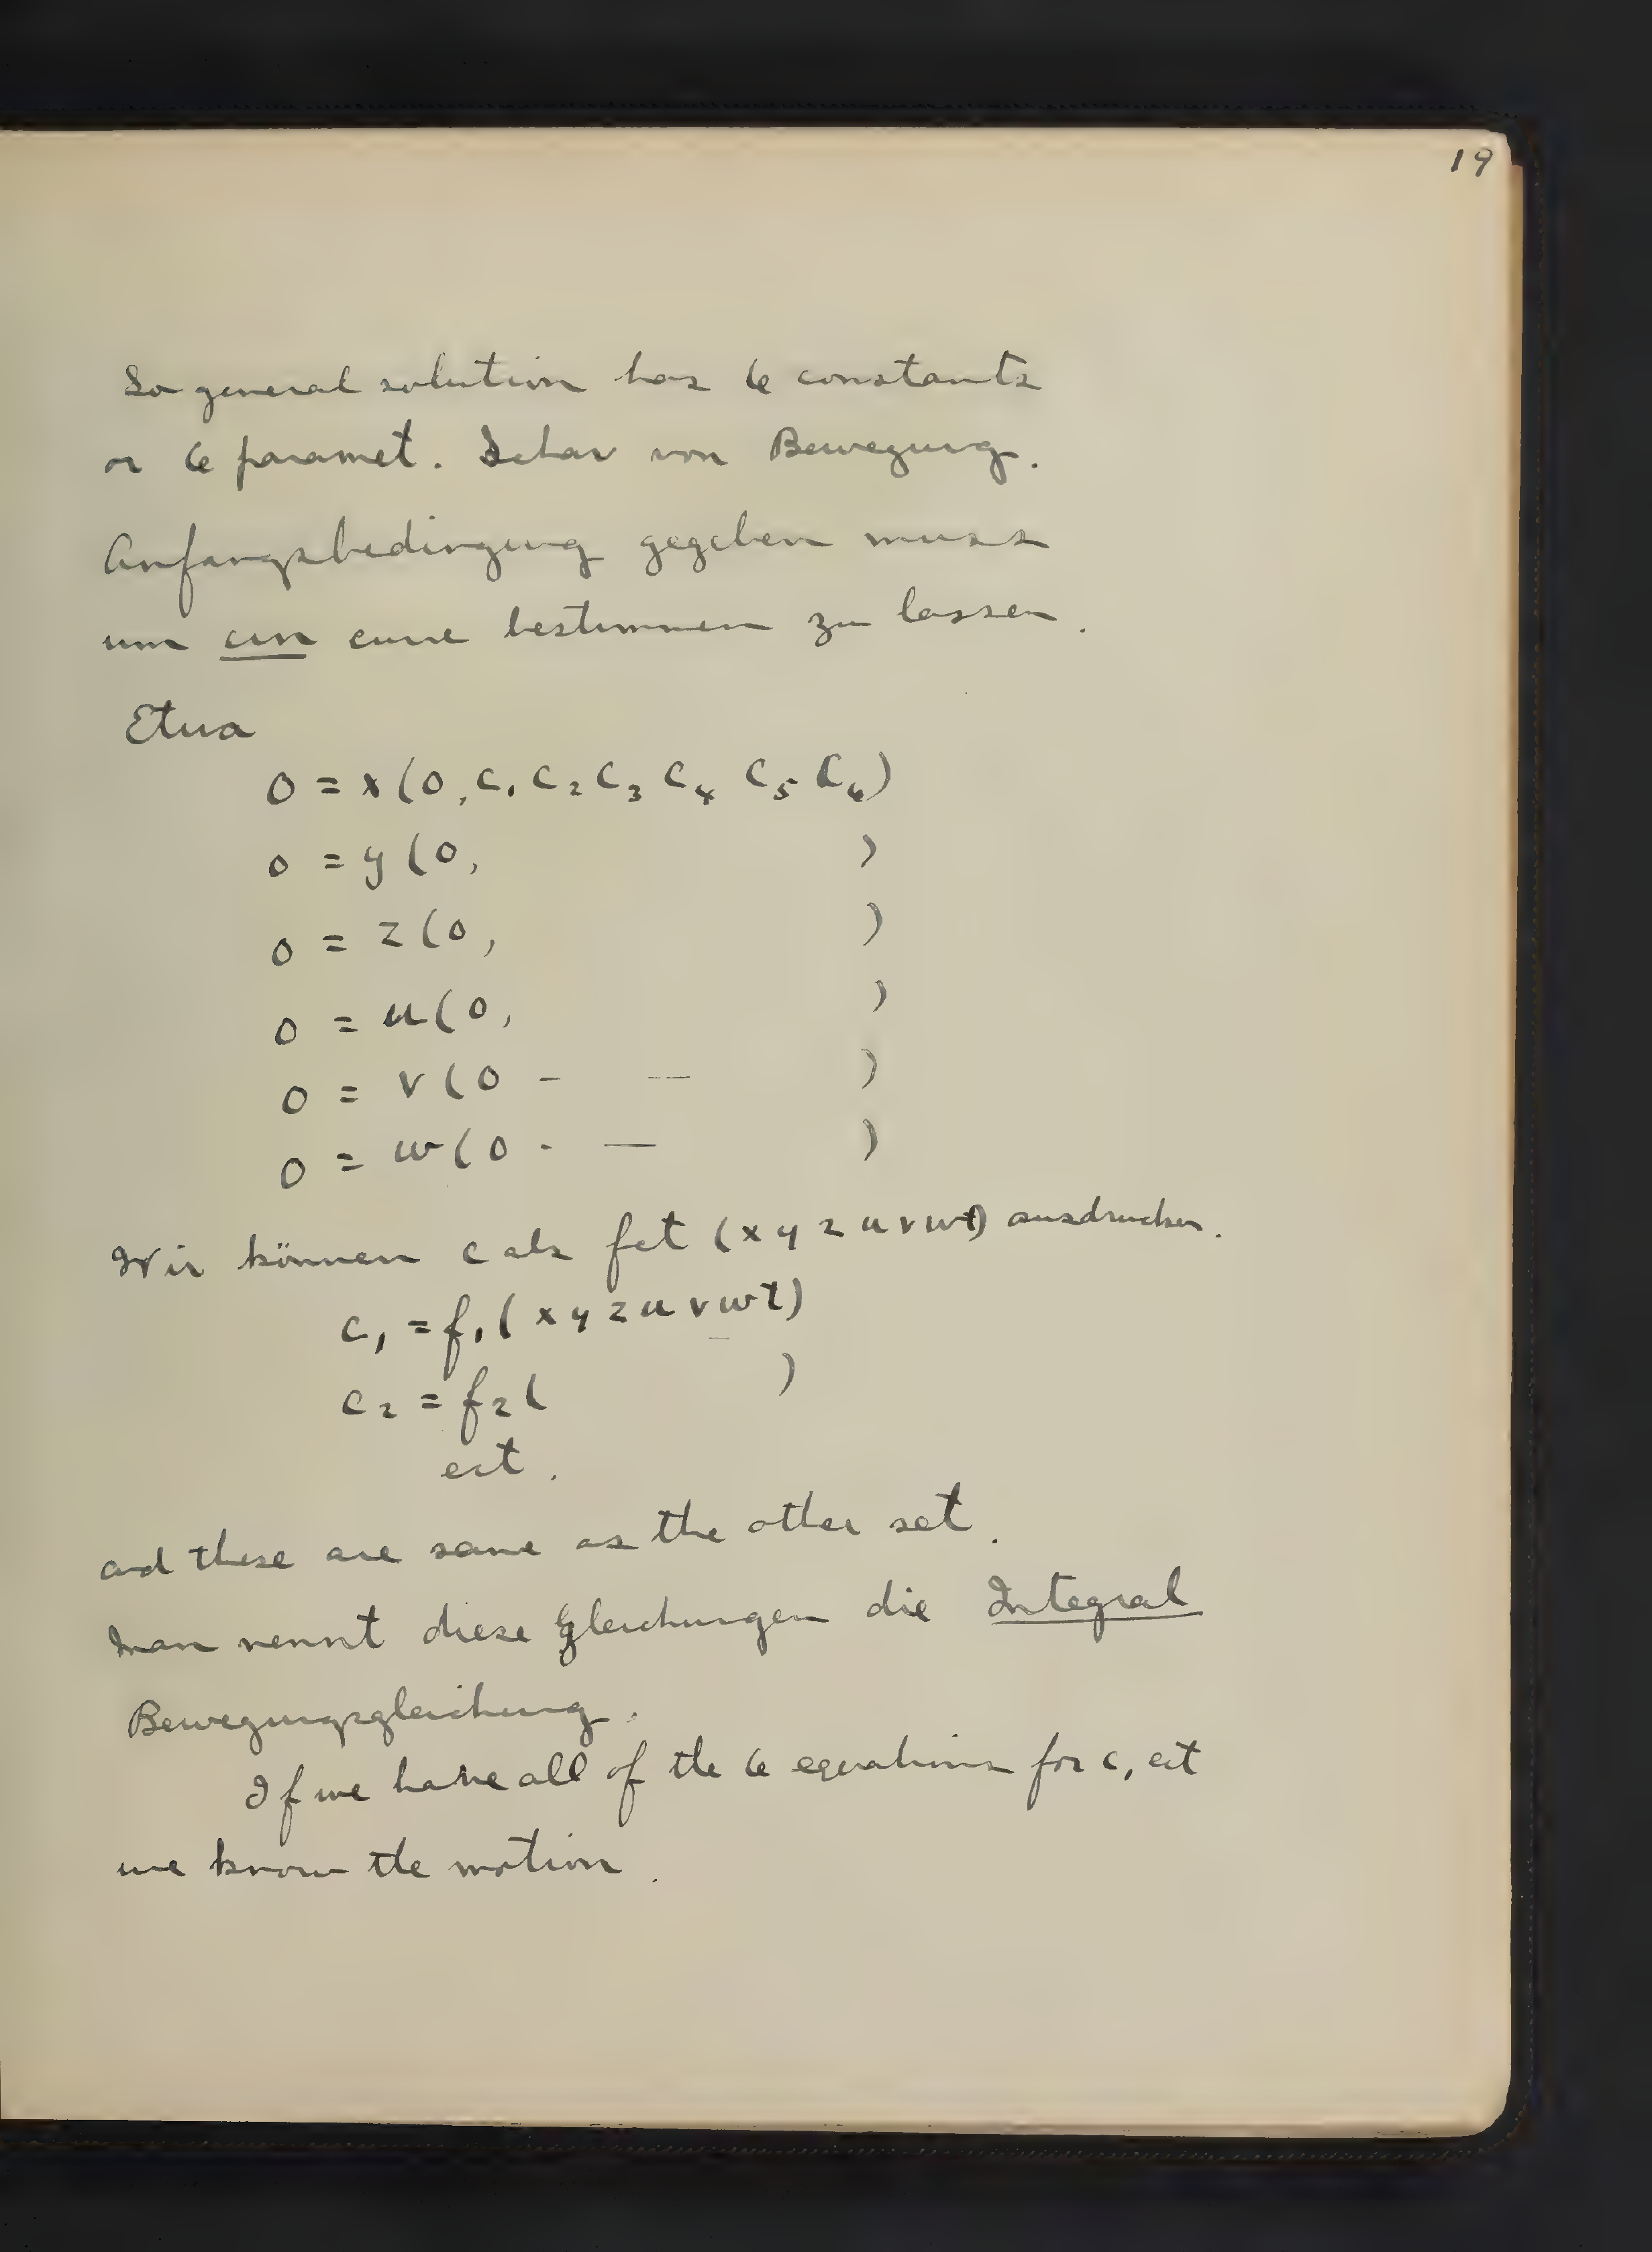 19
So general solution has 6 constants
or 6 paramet. Schar von Bewegung.
Anfangsbedingung gegeben muss
um ein eine bestimmen zu lassen.
Etwa
0 = x(0, c₁ c₂ c₃ c₄ c₅ c₆)
0 = y(0,          )
0 = z(0,          )
0 = u(0,          )
0 = v(0 - —          )
0 = w(0 - —          )
Wir können c als fct (x y z u v w t) ausdrucken.
c₁ = f₁(x y z u v w t)
c₂ = f₂(          )
ect.
and these are same as the other set.
Man nennt diese gleichungen die Integral
Bewegungsgleichung.
If we have all of the 6 equations for c, ect
we know the motion.